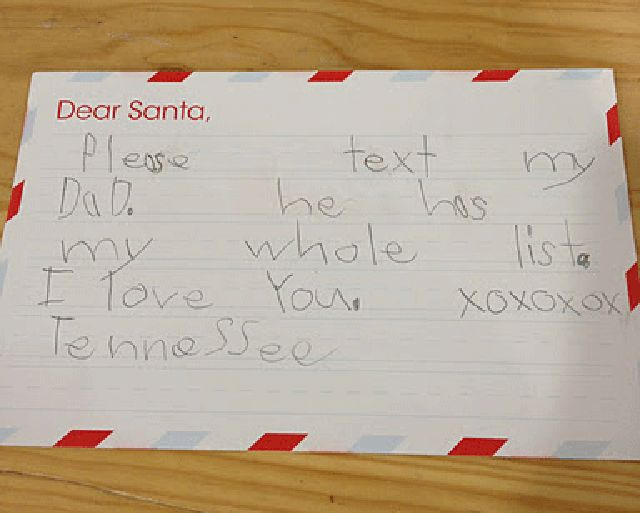 Dear Santa,
Please text my
DaD. he has
my whole list.
I love You. xoxoxox
Tennessee